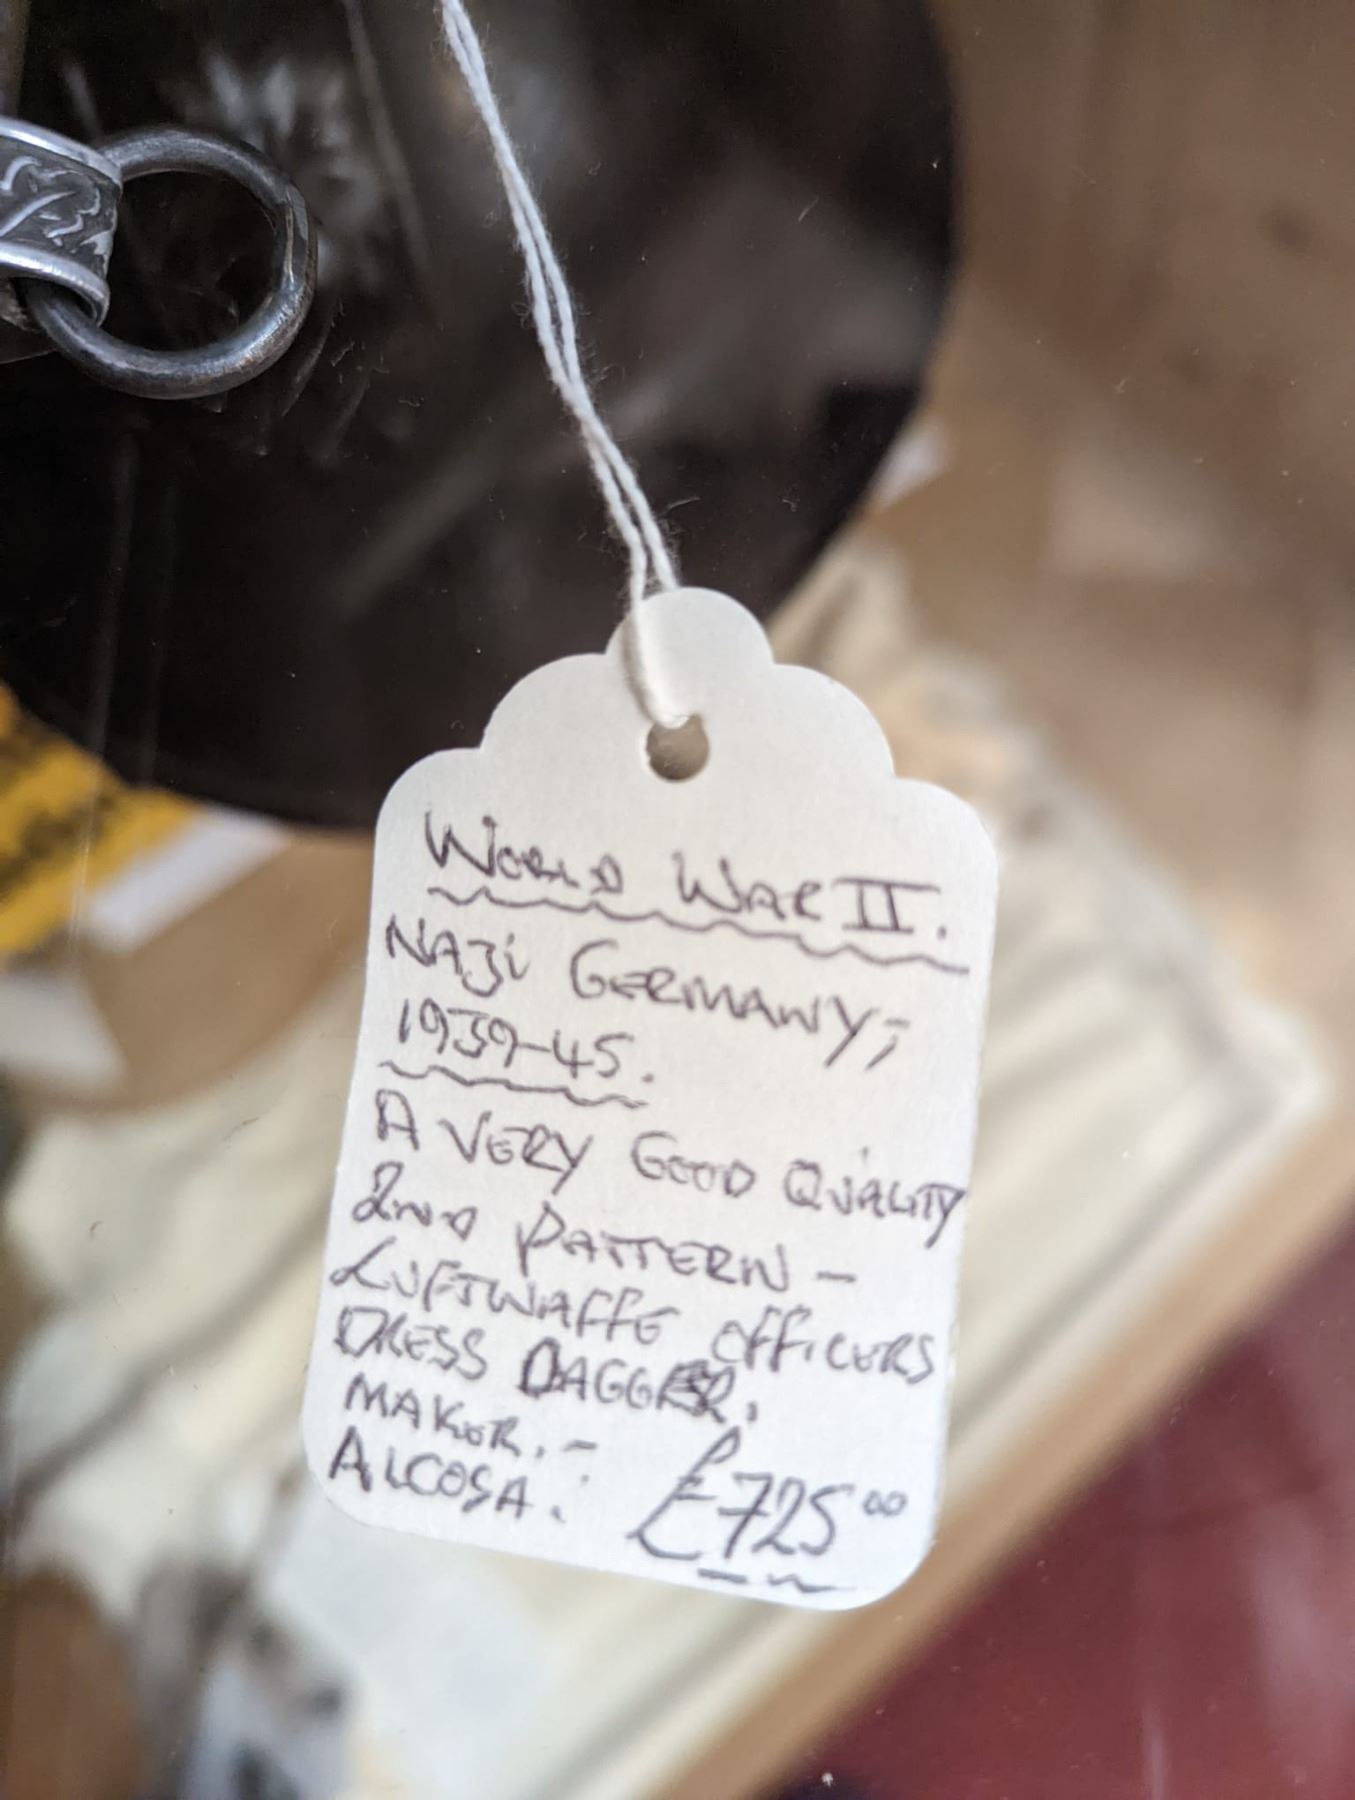 WORLD WAR II.
NAZI GERMANY;
1939-45.
A VERY GOOD QUALITY
2ND PATTERN -
LUFTWAFFE OFFICERS
DRESS DAGGER,
MAKER. -
ALCOSA. : £725.00